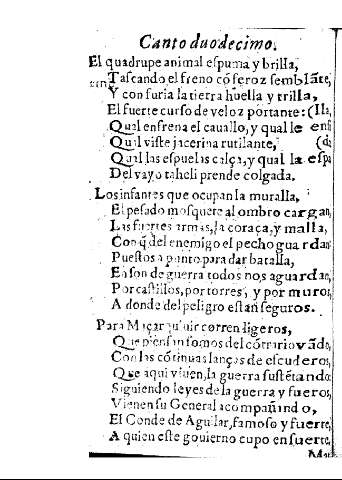 Canto duodecimo.
El quadrupe animal espuma y brilla,
Tascando el freno cō feroz semblāte,
Y con furia la tierra huella y trilla,
El fuerte curso de veloz portante: (lla,
Qual enfrena el cauallo, y qual le ensi
Qual viste jacerina rutilante, (da
Qual las espuelas calça, y qual la espa
Del vayo taheli prende colgada.
Los infantes que ocupan la muralla,
El pesado mosquete al ombro cargan,
Las fuertes armas, la coraça, y malla,
Con q̄ del enemigo el pecho guardan:
Puestos a punto para dar batalla,
En son de guerra todos nos aguardan,
Por castillos, por torres, y por muros,
A donde del peligro estan seguros.
Para Maçarquiuir corren ligeros,
Que piensan somos del cōtrario vādo,
Con las cōtinuas lanças de escuderos,
Que aqui viuen, la guerra sustētando
Siguiendo leyes de la guerra y fueros,
Vienen su General acompañando,
El Conde de Aguilar, famoso y fuerte,
A quien este gouierno cupo en suerte,